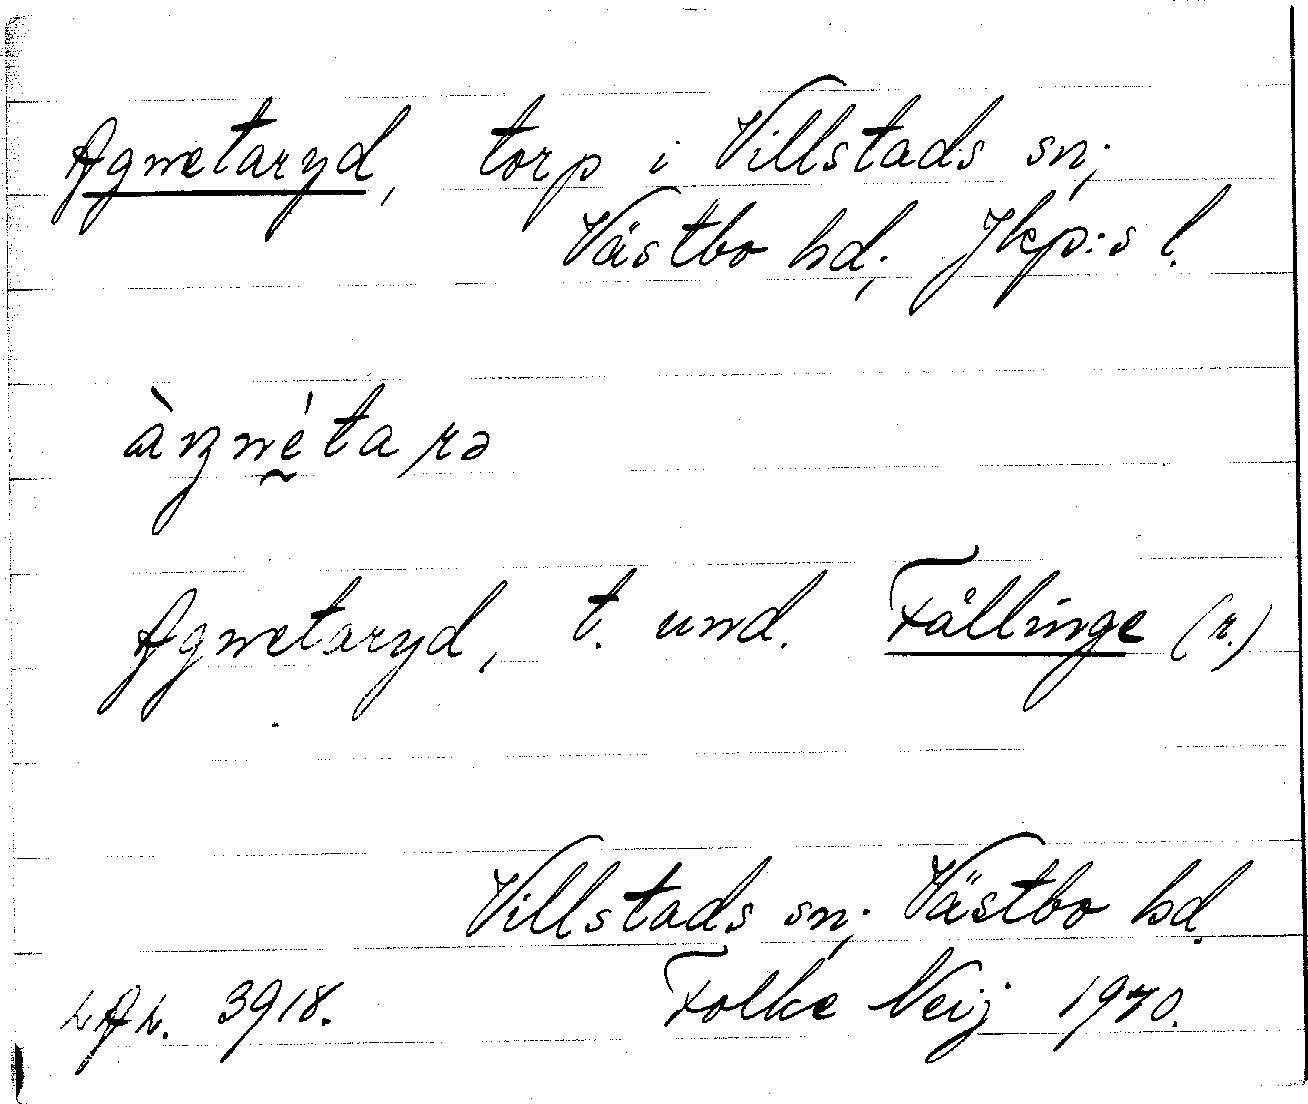 Agnetaryd, torp i Villstads sn;
Västbo hd; Jkp:s l.
àŋnḛ́ta rə
Agnetaryd, t. und. Fållinge (r.)
Villstads sn; Västbo hd.
LAL. 3918. Folke Neij 1970.